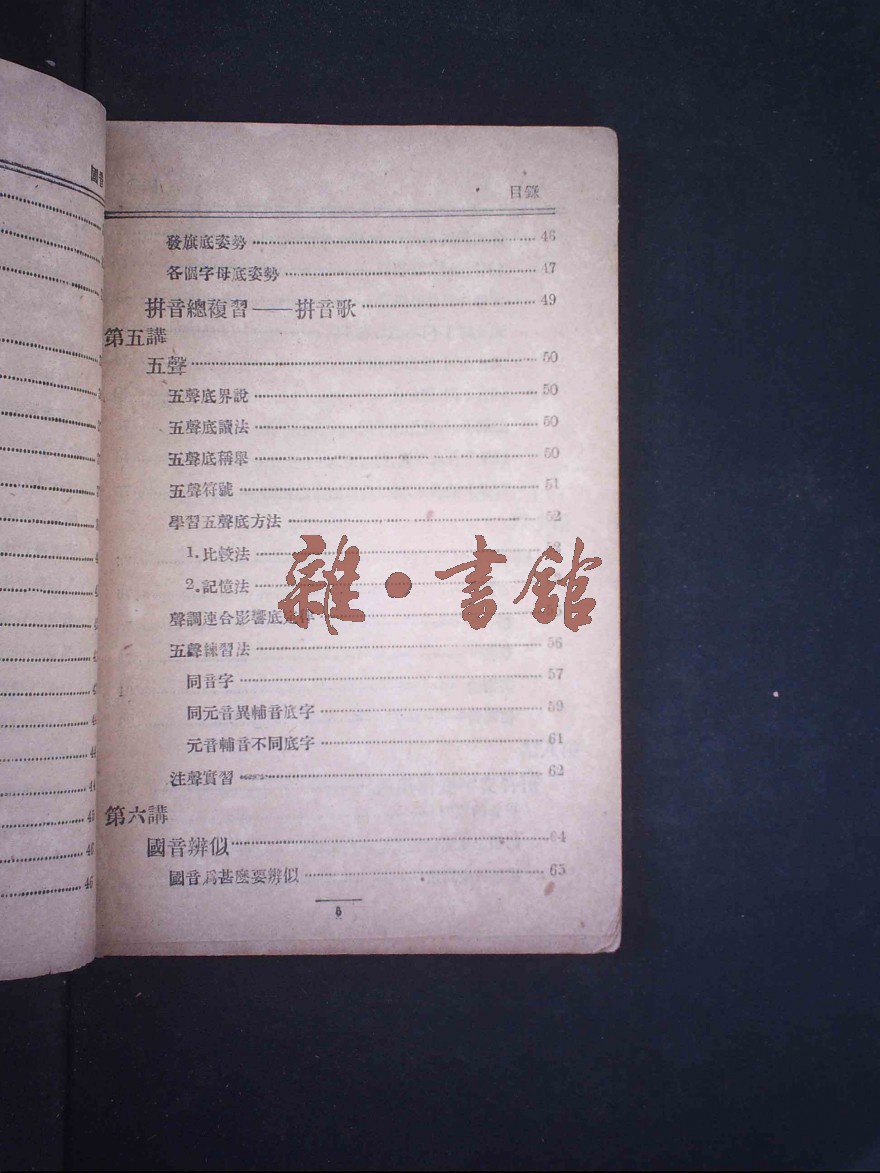 目錄
發旗底姿勢 46
各個字母底姿勢 47
拼音總複習——拼音歌 49
第五講
五聲 50
五聲底界說 50
五聲底讀法 50
五聲底稱舉 50
五聲符號 51
學習五聲底方法 52
1.比較法
2.記憶法
聲調連合影響底定律
五聲練習法 56
同音字 57
同元音異輔音底字 59
元音輔音不同底字 61
注聲實習 62
第六講
國音辨似 64
國音爲甚麼要辨似 65
5
雜·書館